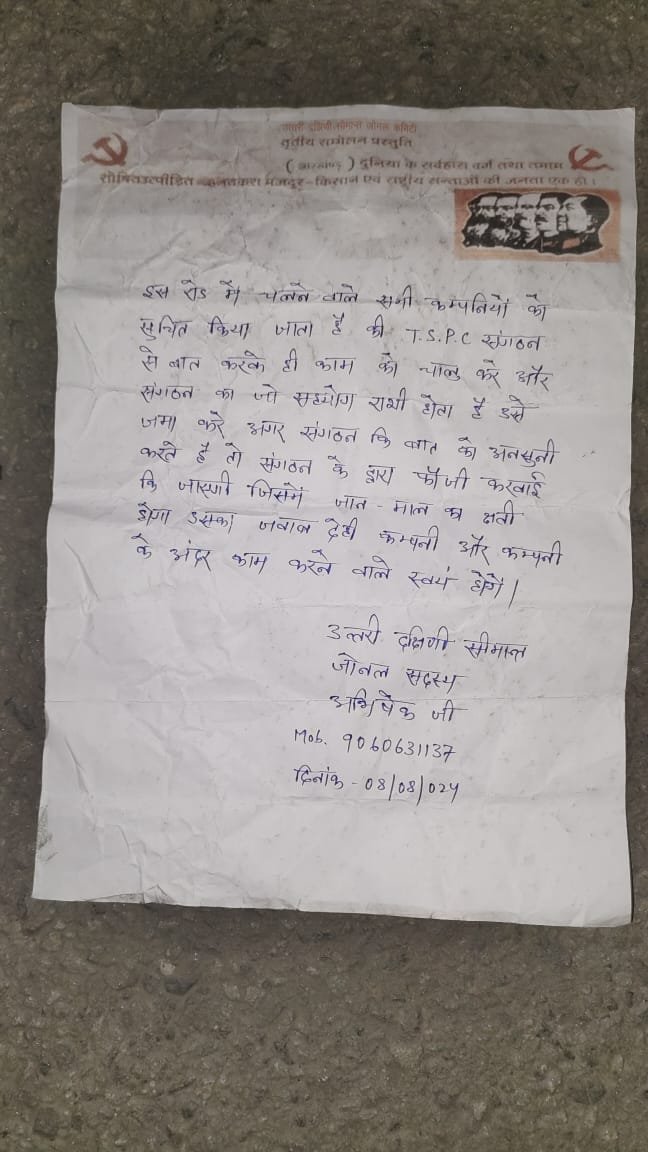 उत्तरी दक्षिणी सीमान्त जोनल कमिटी
तृतीय सम्मेलन प्रस्तुति
(झारखण्ड) दुनिया के सर्वहारा वर्ग तथा तमाम
शोषितउत्पीड़ित मजदूर-किसान एवं राष्ट्रीय सत्ताओं की जनता एक हो।
इस रोड में चलने वाले सभी कम्पनियों को
सुचित किया जाता है की T.S.P.C संगठन
से बात करके ही काम को चालु करे और
संगठन का जो सहयोग राशी होता है उसे
जमा करे अगर संगठन कि बात को अनसुनी
करते है तो संगठन के द्वारा फौजी करवाई
कि जाएगी जिसमें जान-माल का क्षती
होगा उसका जवाब देही कम्पनी और कम्पनी
के अंदर काम करने वाले स्वयं होगें।
उत्तरी दक्षिणी सीमान्त
जोनल सदस्य
अभिषेक जी
Mob. 9060631137
दिनांक - 08/08/024